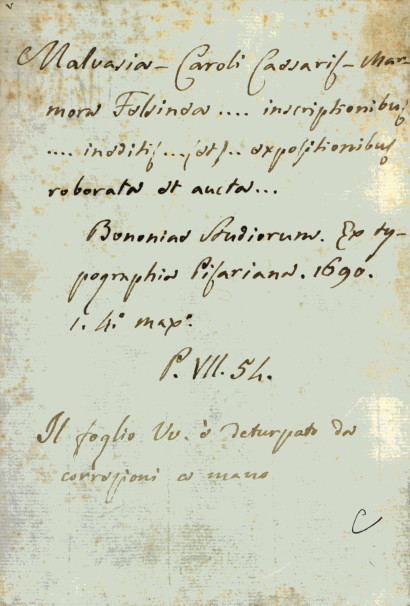 Malvasia - Caroli Caesaris - Mar-
mora Felsinea .... inscriptionibus
.... ineditis ... expositionibus
roborata et aucta...
Bononiae Studiorum. Ex ty-
pographia Pisariana. 1690.
1. 4.° max.°
P. VII. 54.
Il foglio Vv. è deturpato da
correzioni a mano
C